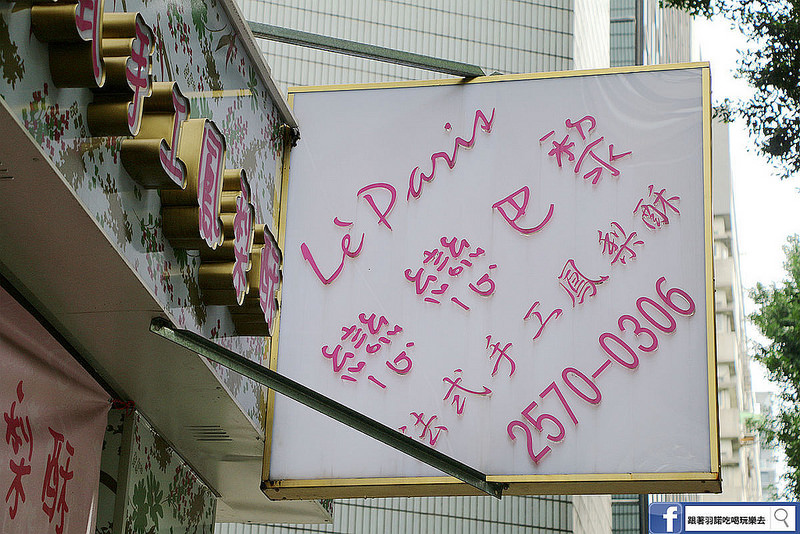 Lè Paris
戀戀巴黎
法式手工鳳梨酥
2570-0306
手工鳳梨酥
梨酥
跟著羽諾吃喝玩樂去